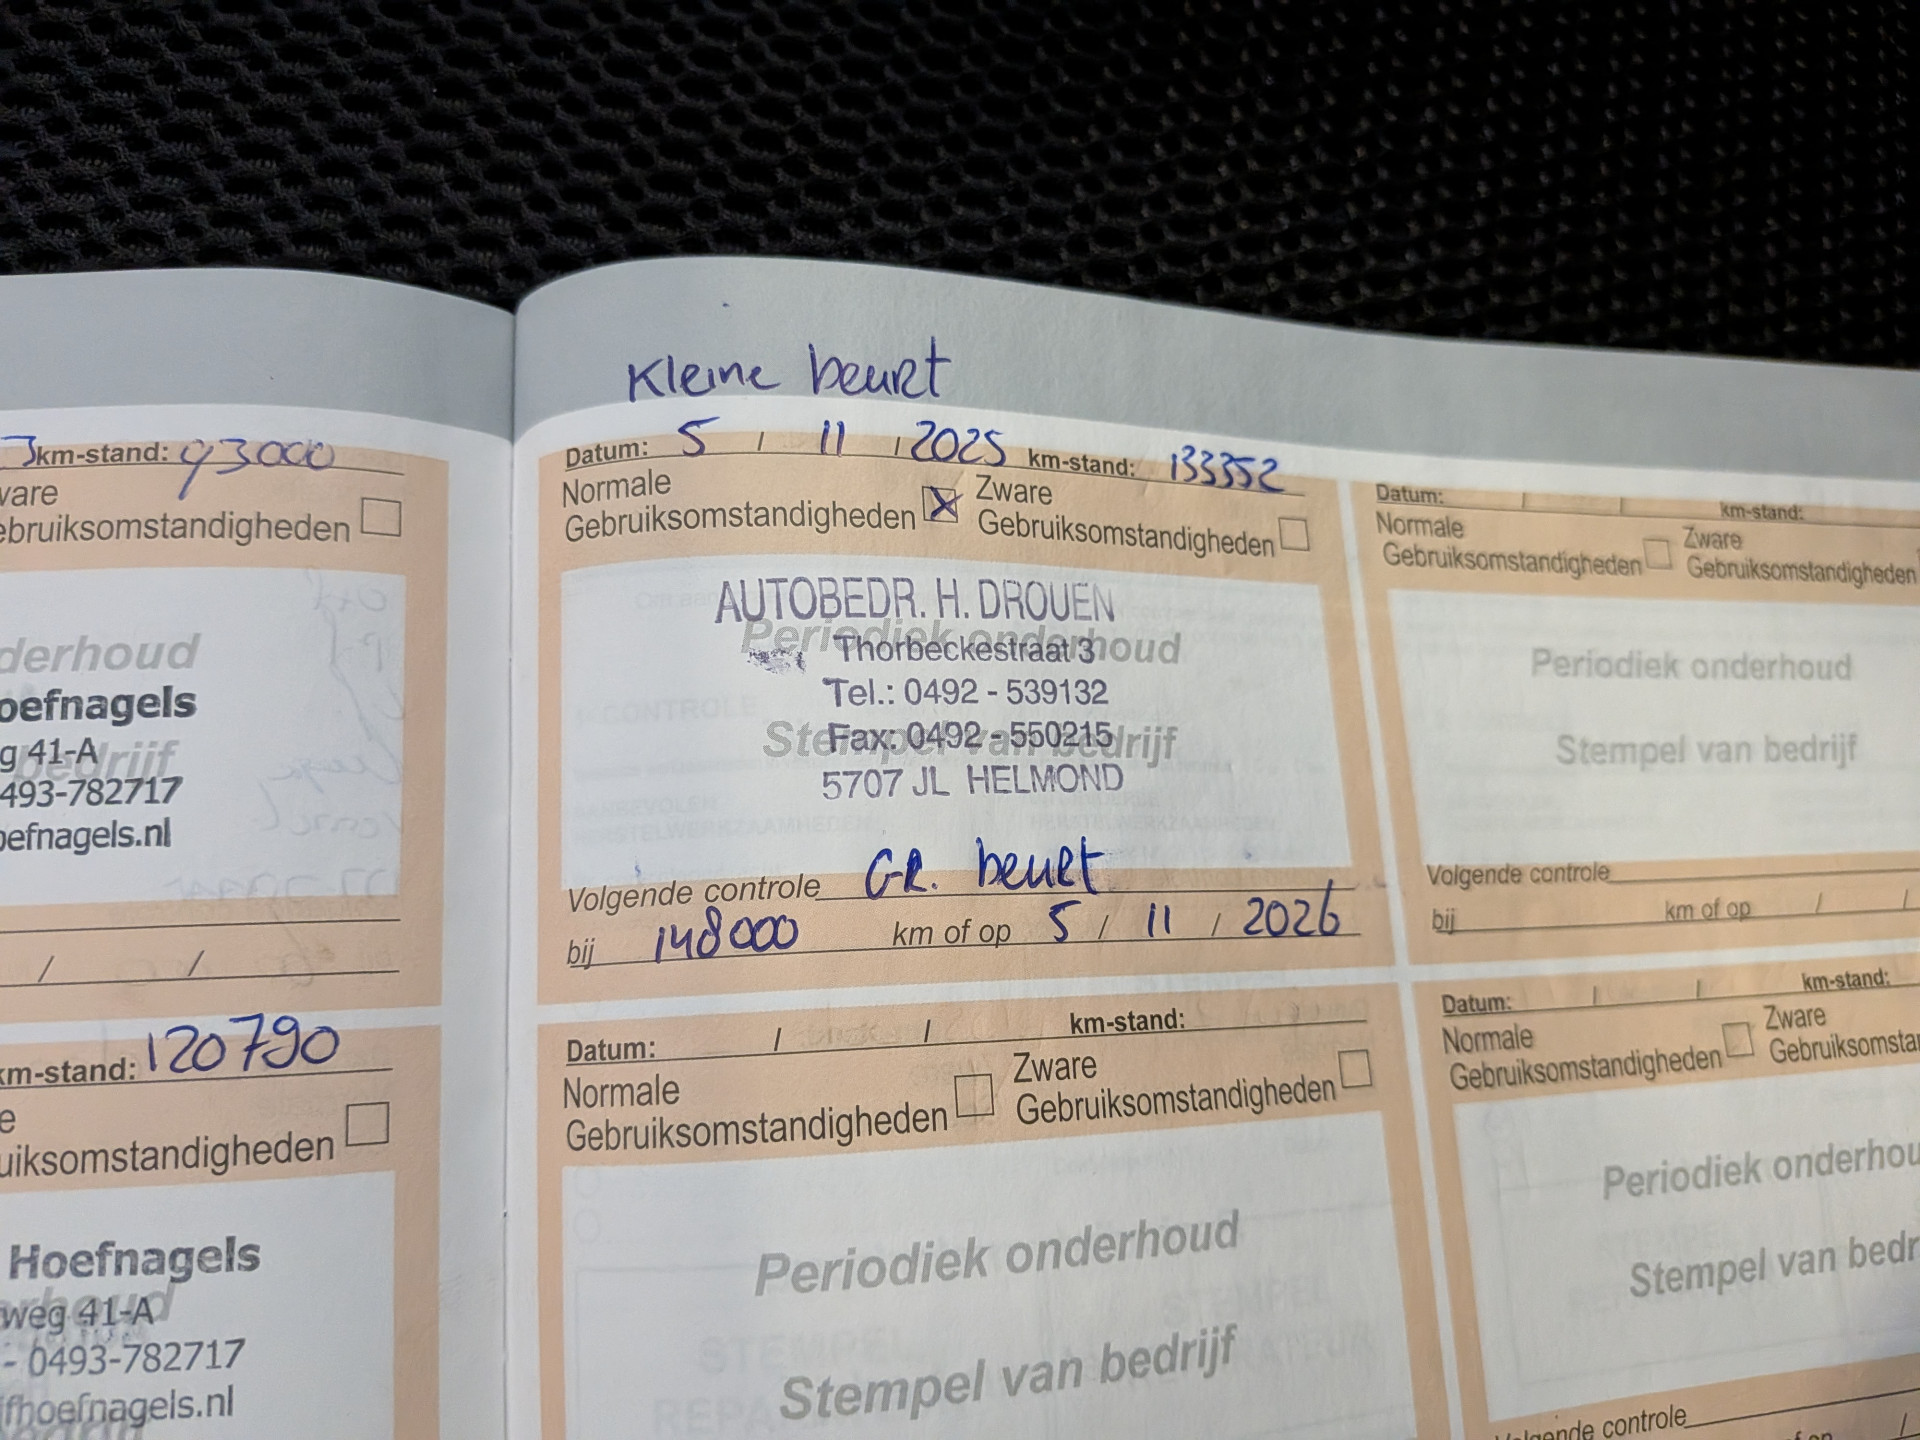 km-stand: 93000
ware
ebruiksomstandigheden
derhoud
oefnagels
g 41-A
bedrijf
493-782717
oefnagels.nl
/ /
km-stand: 120790
e
uiksomstandigheden
Hoefnagels
weg 41-A
- 0493-782717
fhoefnagels.nl
Kleine beurt
Datum: 5 / 11 / 2025 km-stand: 133352
Normale Zware
Gebruiksomstandigheden X Gebruiksomstandigheden
AUTOBEDR. H. DROUEN
Periodiek onderhoud
Thorbeckestraat 3
Tel.: 0492 - 539132
Stempel van bedrijf
Fax: 0492 - 550215
5707 JL HELMOND
Volgende controle GR. beurt
bij 148000 km of op 5 / 11 / 2026
Datum: / / km-stand:
Normale Zware
Gebruiksomstandigheden Gebruiksomstandigheden
Periodiek onderhoud
Stempel van bedrijf
Datum: / / km-stand:
Normale Zware
Gebruiksomstandigheden Gebruiksomstandigheden
Periodiek onderhoud
Stempel van bedrijf
Volgende controle
bij km of op / /
Datum: / / km-stand:
Normale Zware
Gebruiksomstandigheden Gebruiksomsta
Periodiek onderhou
Stempel van bedr
Volgende controle